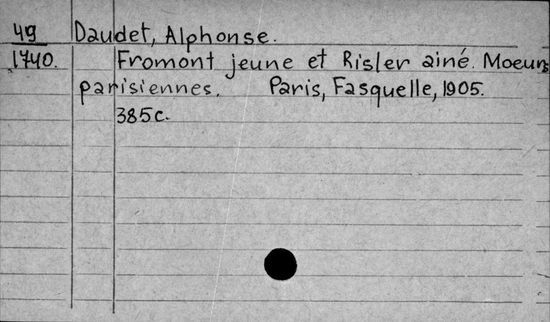 49 Daudet, Alphonse.
1740. Fromont jeune et Risler ainé. Moeurs
parisiennes. Paris, Fasquelle, 1905.
385c.